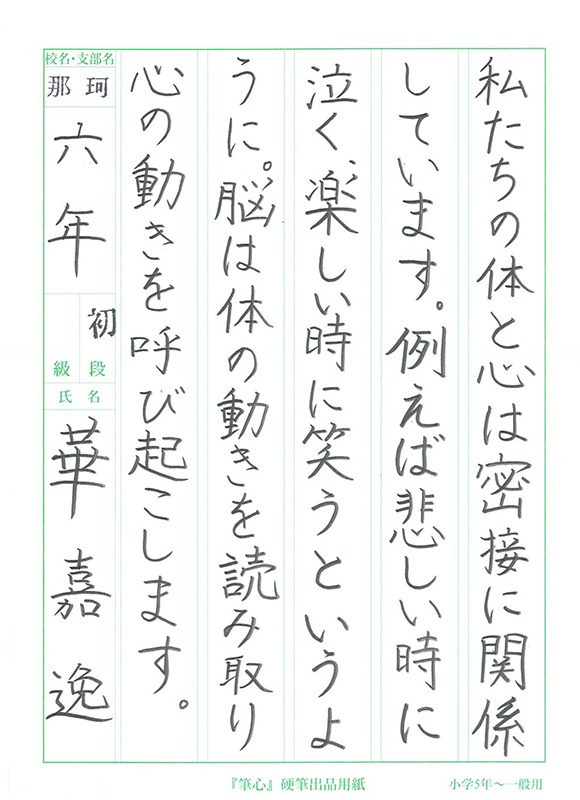 私たちの体と心は密接に関係
しています。例えば悲しい時に
泣く、楽しい時に笑うというよ
うに。脳は体の動きを読み取り
心の動きを呼び起こします。
校名・支部名
那珂
六年
初
段
級
氏名
華嘉逸
『筆心』硬筆出品用紙
小学5年〜一般用